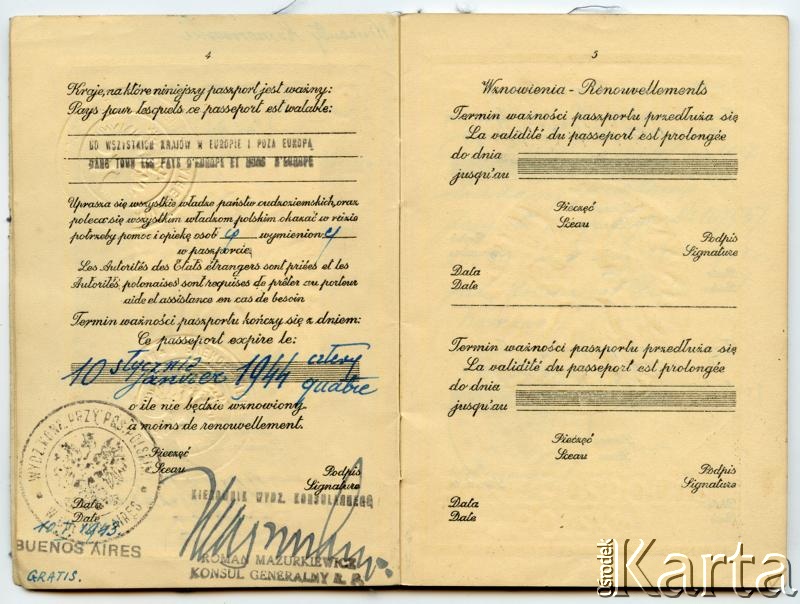 4
Kraje, na które niniejszy paszport jest ważny:
Pays pour lesquels ce passeport est valable:
DO WSZYSTKICH KRAJÓW W EUROPIE I POZA EUROPĄ
DANS TOUS LES PAYS D'EUROPE ET HORS D'EUROPE
Uprasza się wszystkie władze państw cudzoziemskich, oraz
poleca się wszystkim władzom polskim okazać w razie
potrzeby pomoc i opiekę osobie wymienionej
w paszporcie.
Les Autorités des Etats étrangers sont priées et les
Autorités polonaises sont requises de prêter au porteur
aide et assistance en cas de besoin
Termin ważności paszportu kończy się z dniem:
Ce passeport expire le:
10 stycznia 1944 cztery
janvier quatre
o ile nie będzie wznowiony
à moins de renouvellement.
WYDZ. KONS. PRZY POS. POLSKIM
W BUENOS AIRES
Pieczęć
Sceau
Podpis
Signature
KIEROWNIK WYDZ. KONSULARNEGO
Data
Date
10.I.1943
BUENOS AIRES
ROMAN MAZURKIEWICZ
KONSUL GENERALNY R. P.
GRATIS.
5
Wznowienia - Renouvellements
Termin ważności paszportu przedłuża się
La validité du passeport est prolongée
do dnia
jusqu'au
Pieczęć
Sceau
Podpis
Signature
Data
Date
Termin ważności paszportu przedłuża się
La validité du passeport est prolongée
do dnia
jusqu'au
Pieczęć
Sceau
Podpis
Signature
Data
Date
ośrodek
Karta